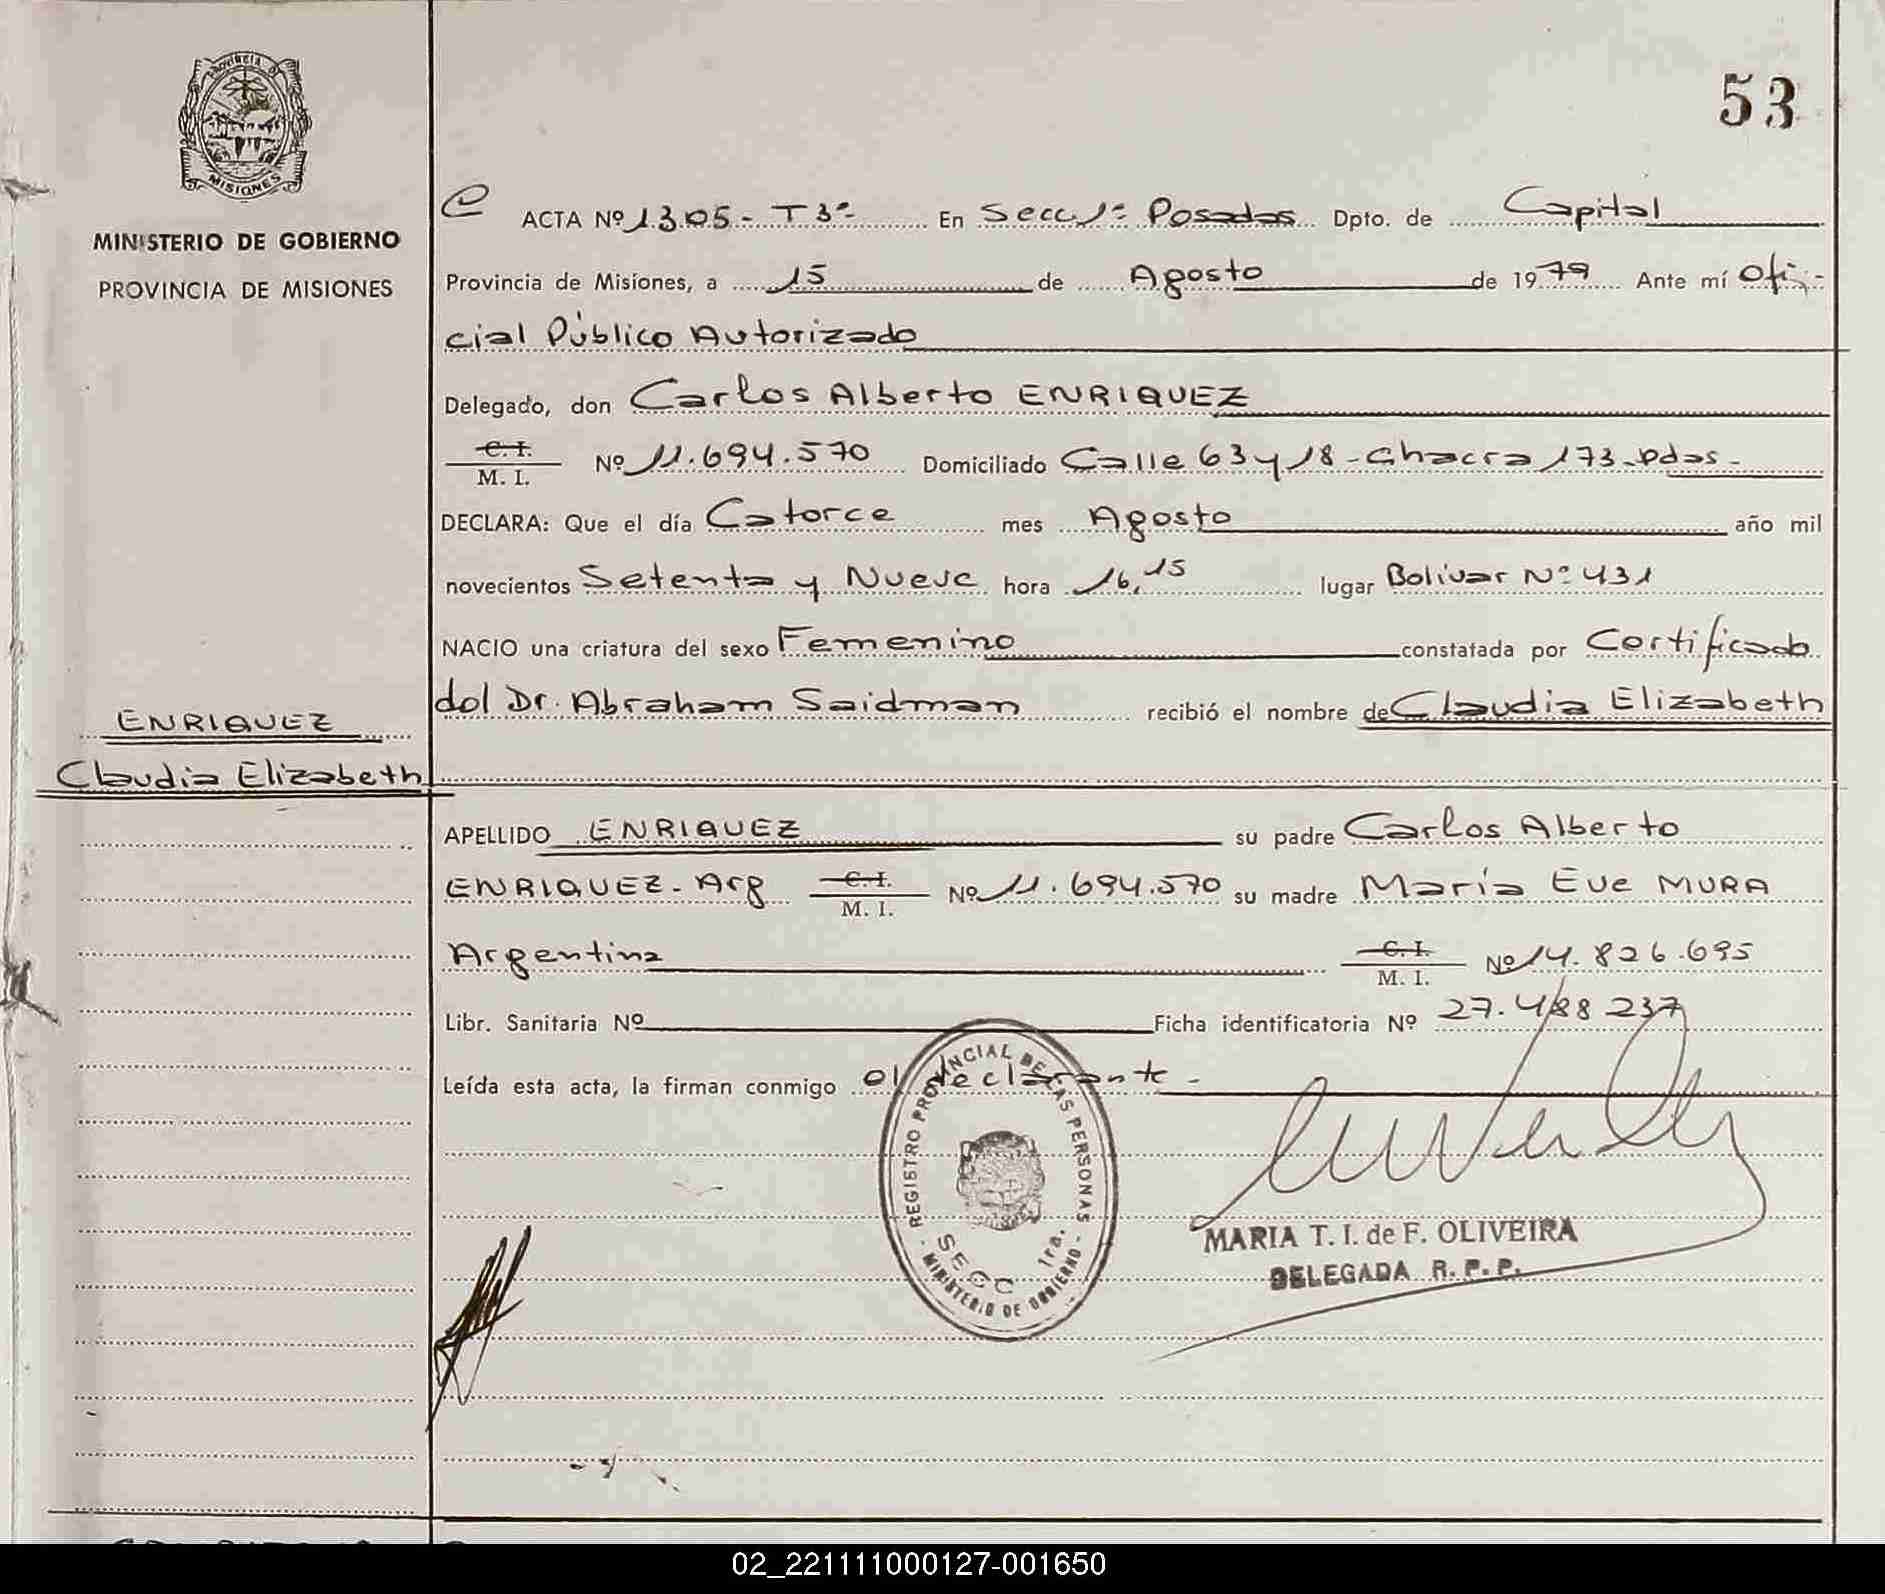 53
PROVINCIA D
MISIONES
MINISTERIO DE GOBIERNO
PROVINCIA DE MISIONES
ACTA Nº 1305 - T 3º - En Secc. 1ª Posadas Dpto. de Capital
Provincia de Misiones, a 15 de Agosto de 1979 Ante mí Ofi-
cial Público Autorizado
Delegado, don Carlos Alberto ENRIQUEZ
C. I.
M. I. Nº 11.694.570 Domiciliado Calle 63 y 18 - Chacra 173 - Pdas -
DECLARA: Que el día Catorce mes Agosto año mil
novecientos Setenta y Nueve hora 16,15 lugar Bolívar Nº 431
NACIO una criatura del sexo Femenino constatada por Certificado
del Dr. Abraham Saidman recibió el nombre de Claudia Elizabeth
ENRIQUEZ
Claudia Elizabeth
APELLIDO ENRIQUEZ su padre Carlos Alberto
ENRIQUEZ - Arg C. I.
M. I. Nº 11.694.570 su madre María Eve MURA
Argentina C. I.
M. I. Nº 14.826.695
Libr. Sanitaria Nº Ficha identificatoria Nº 27.488 237
Leída esta acta, la firman conmigo el declarante -
REGISTRO PROVINCIAL DE LAS PERSONAS
SECC 1ra.
- MINISTERIO DE GOBIERNO -
MARIA T. I. de F. OLIVEIRA
DELEGADA R. P. P.
02_221111000127-001650